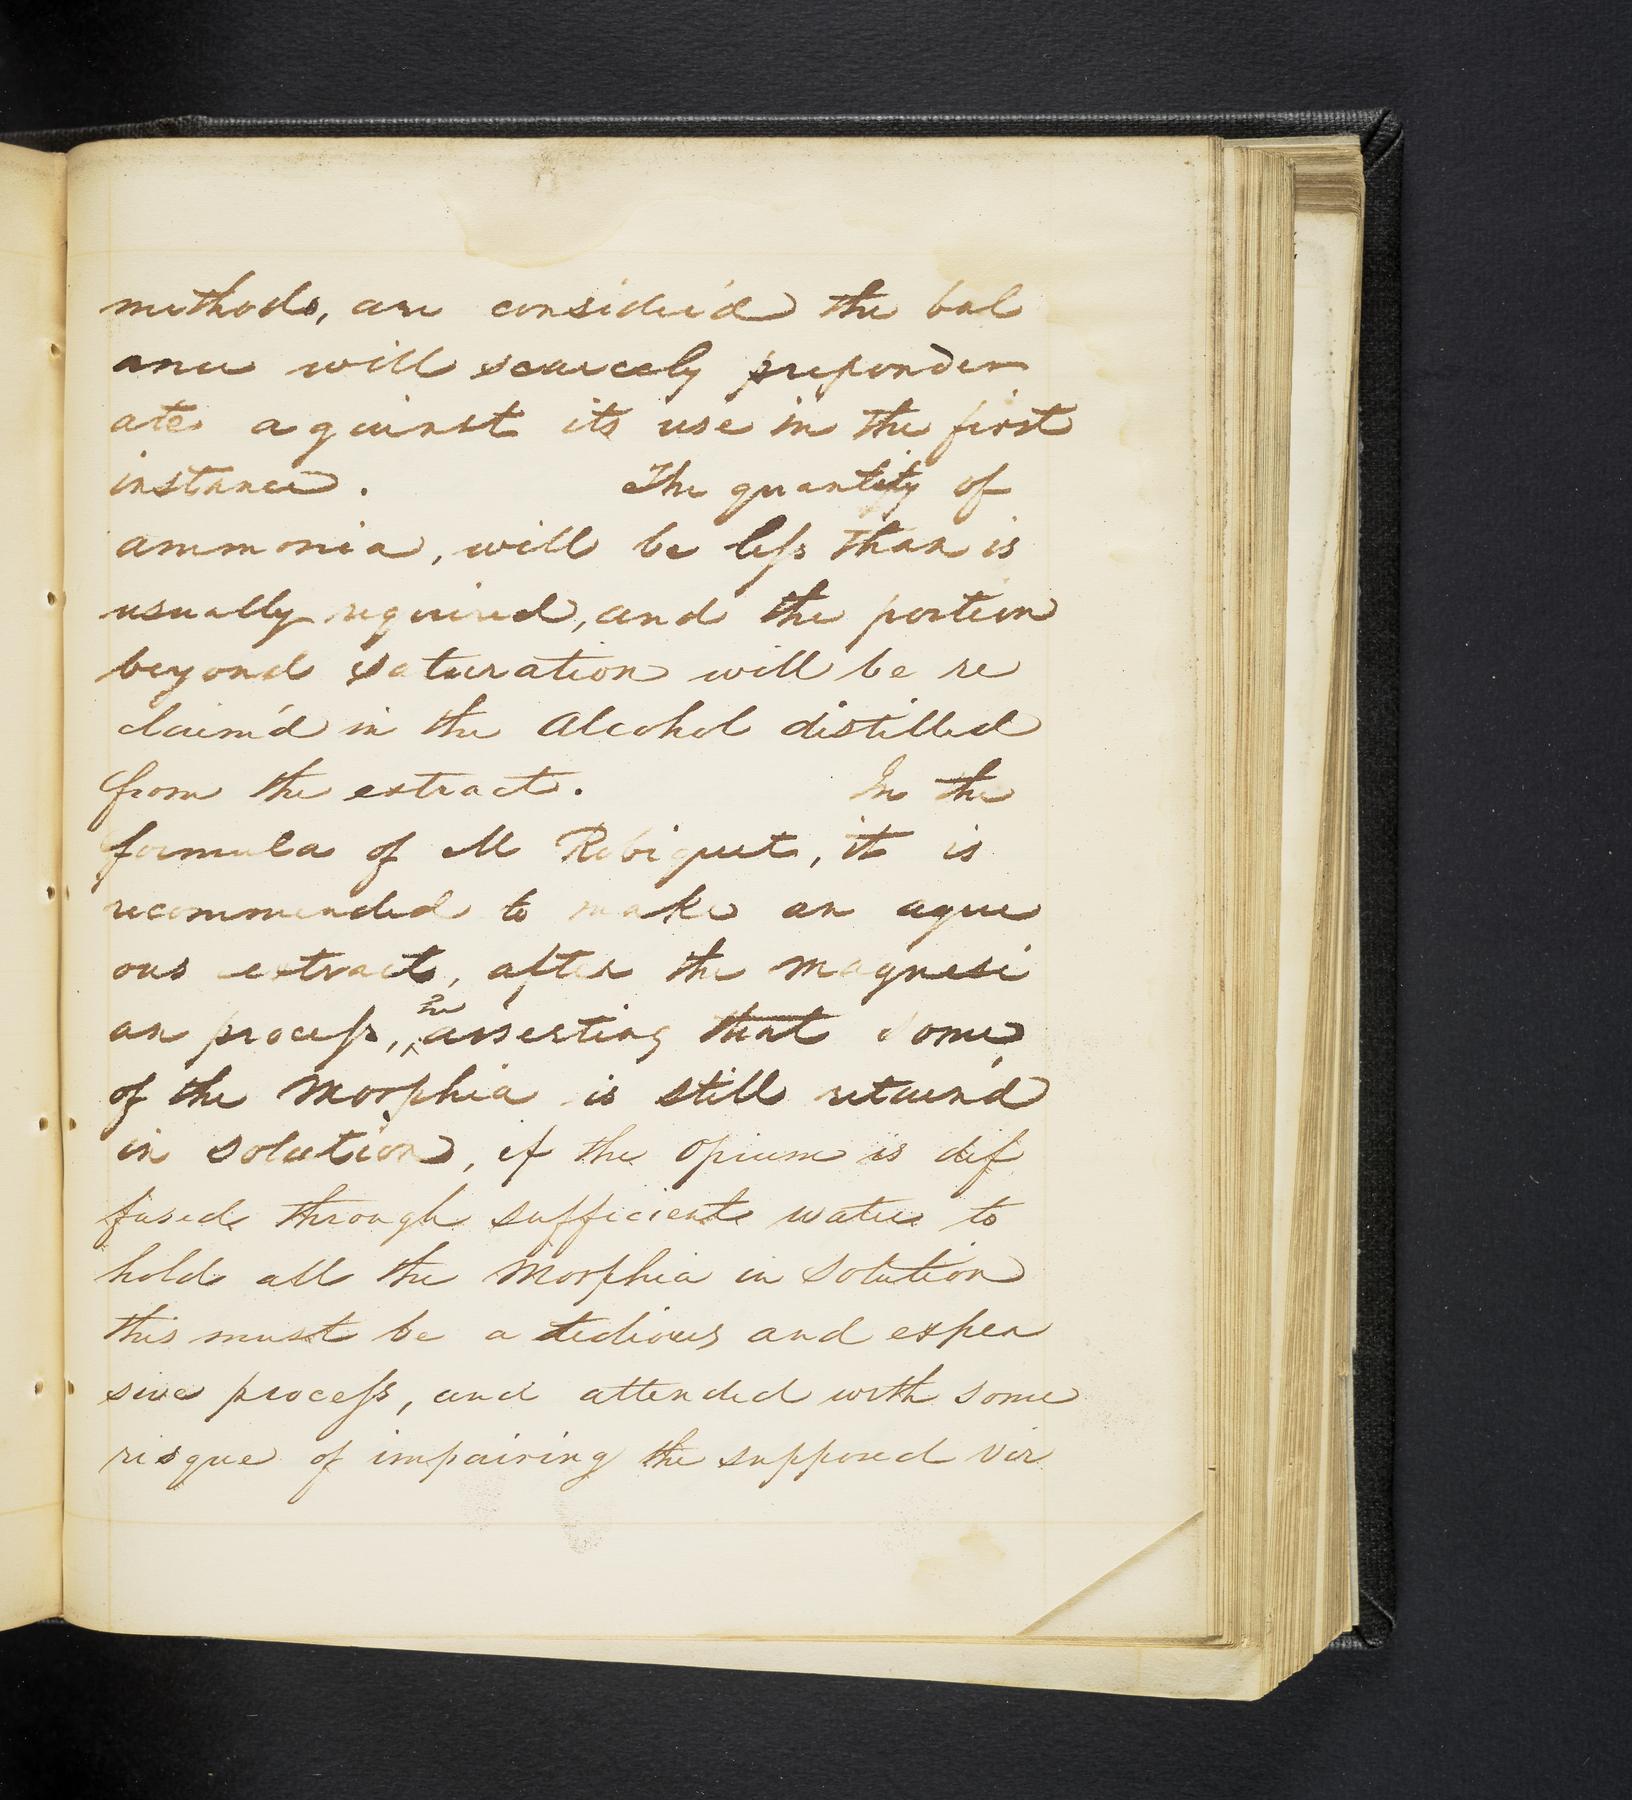 methods, are consider'd the bal
ance will scarcely preponder
ate against its use in the first
instance. The quantity of
ammonia, will be less than is
usually required, and the portion
beyond saturation will be re
claim'd in the Alcohol distilled
from the extract. In the
formula of M Robiquet, it is
recommended to make an aque
ous extract, after the magnesi
he
an process, ‸ asserting that some
of the Morphia is still retain'd
in solution, if the Opium is dif
fused through sufficient water to
hold all the Morphia in solution
this must be a tedious and expen
sive process, and attended with some
risque of impairing the supposed vir